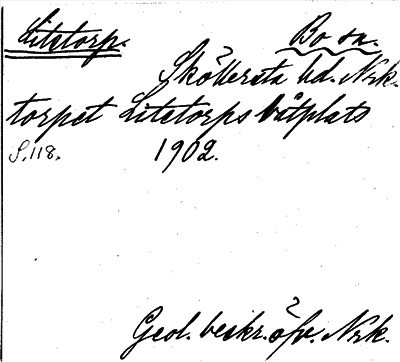 Litstorp. Bo sn.
Sköllersta hd. Nrk.
torpet Litstorps båtplats
S. 118. 1902.
Geol. beskr. öfv. Nrk.